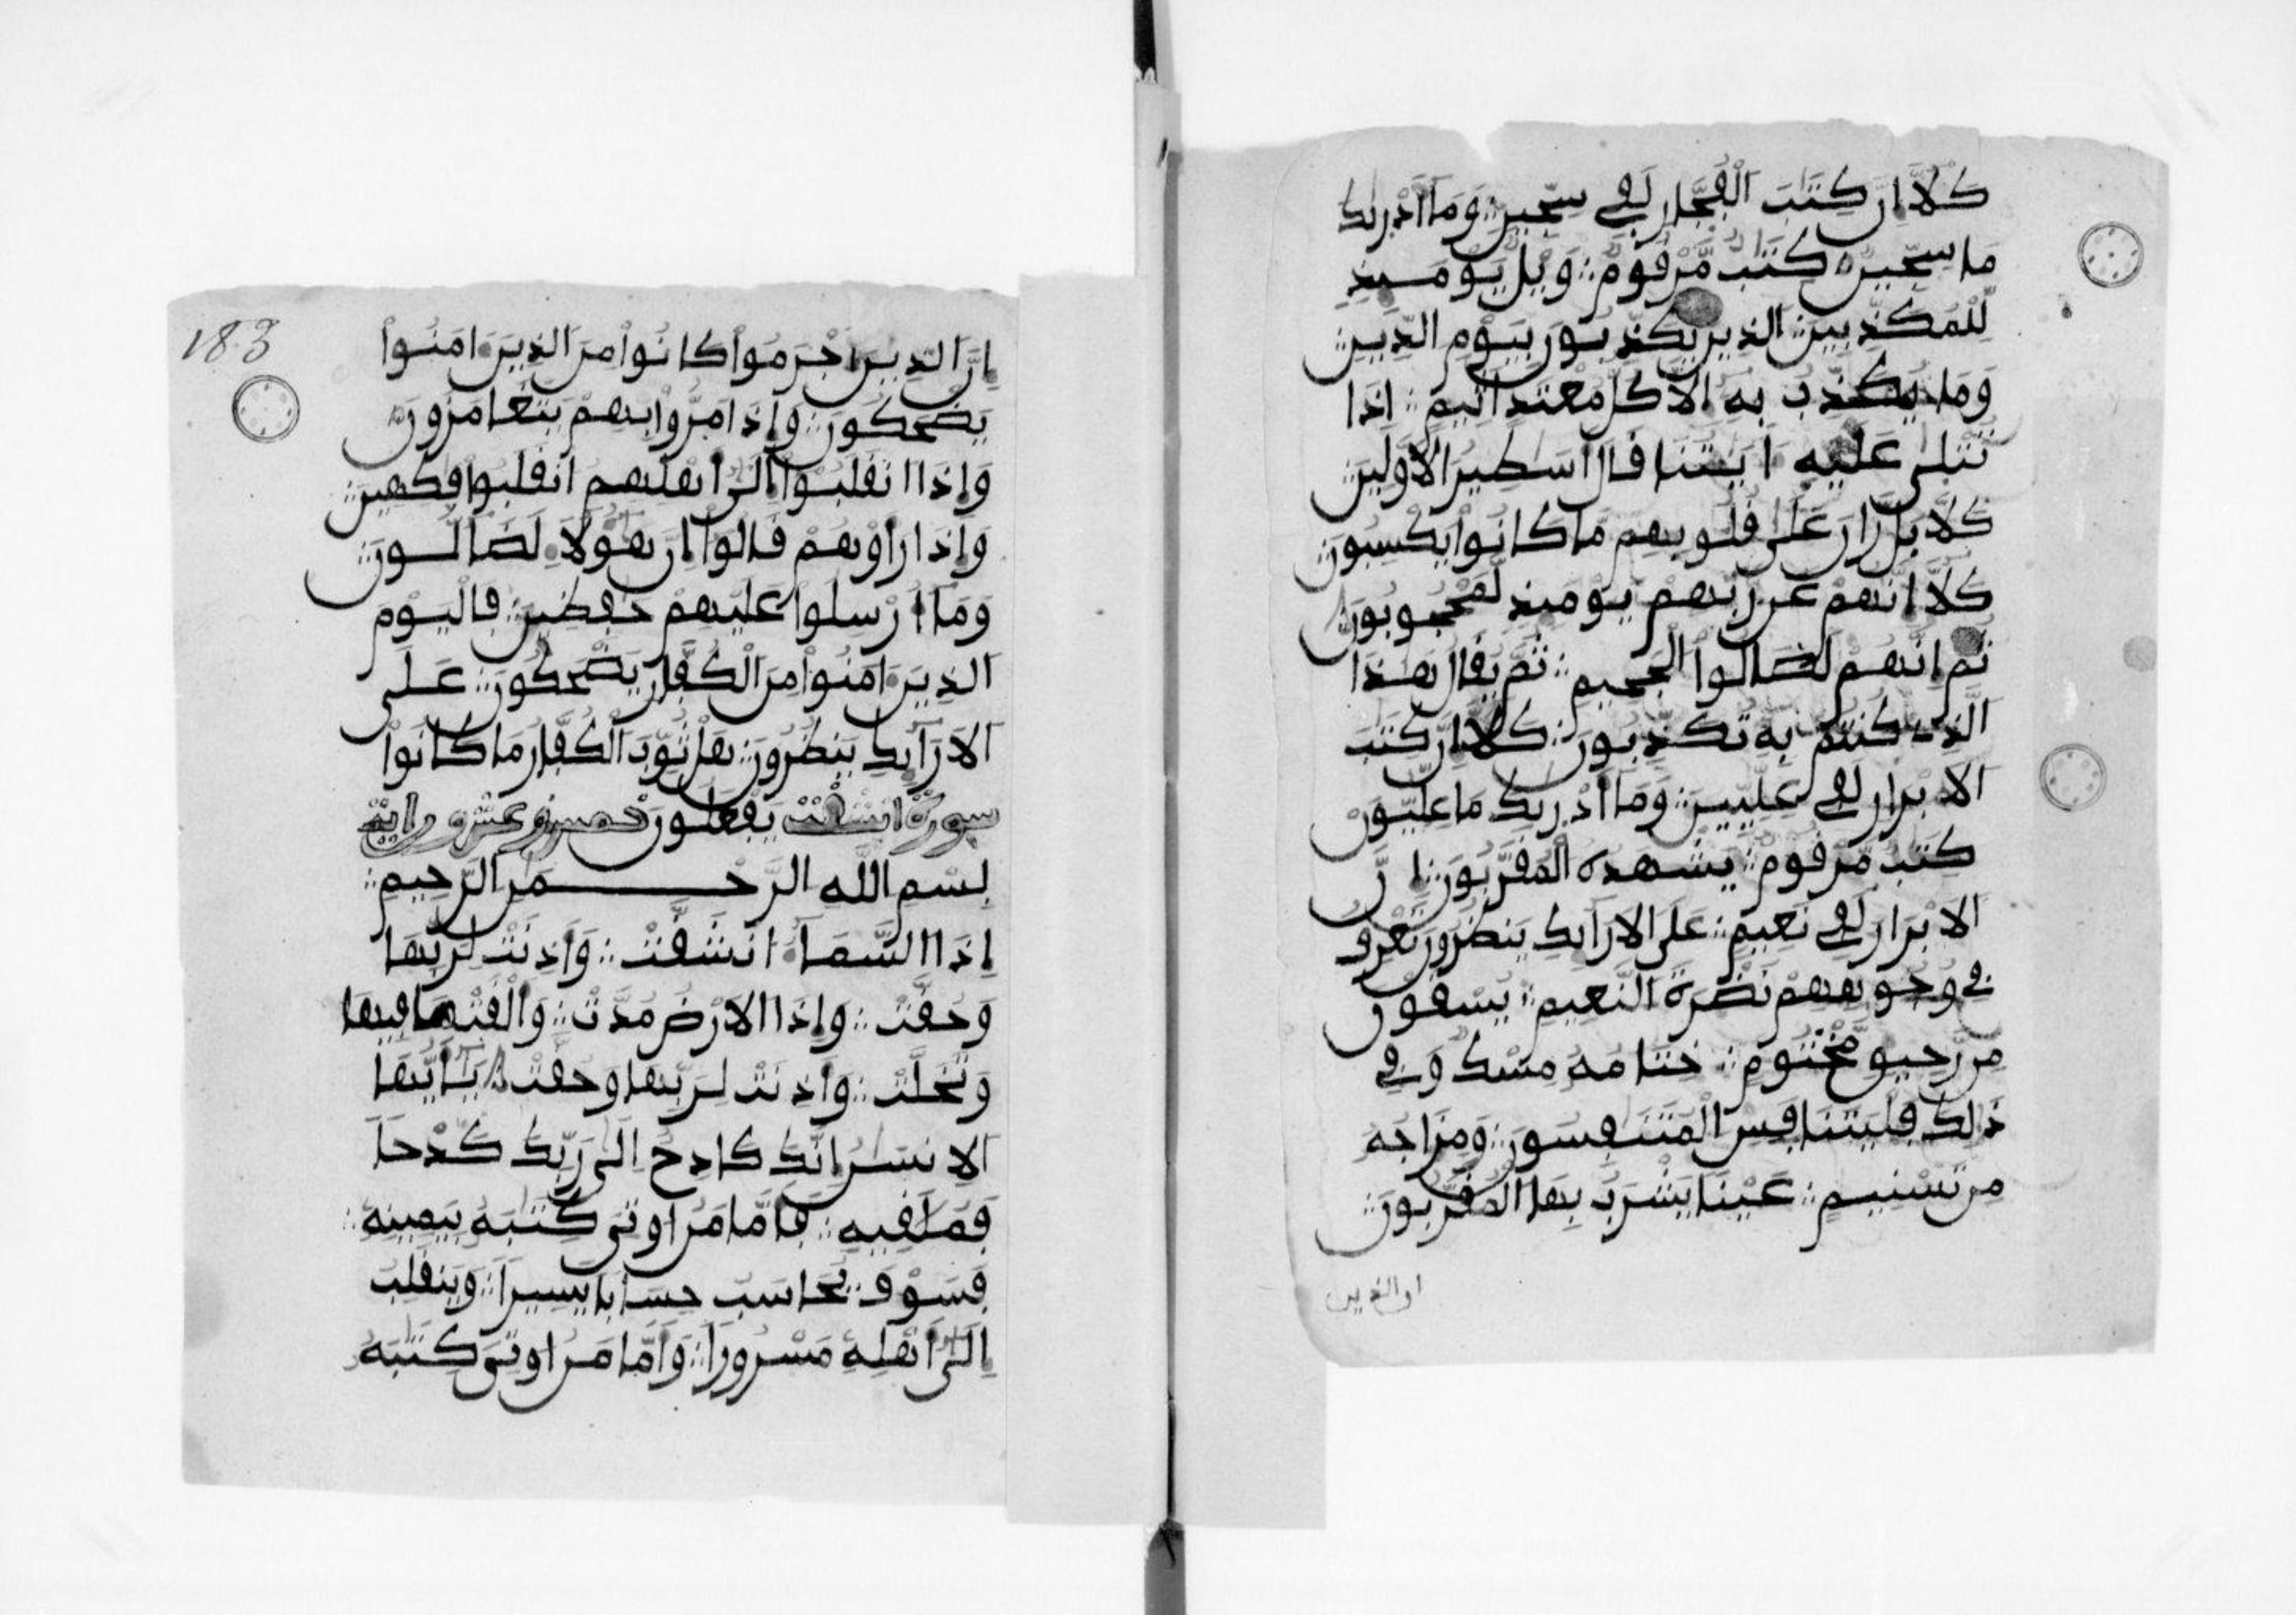 كَلَّا إِنَّ كِتَٰبَ ٱلْفُجَّارِ لَفِے سِجِّينٖ وَمَا أَدْر۪ىٰكَ
مَا سِجِّينٞ كِتَٰبٞ مَّرْقُومٞ وَيْلٞ يَوْمَئِذٖ
لِّلْمُكَذِّبِينَ ٱلذِينَ يُكَذِّبُونَ بِيَوْمِ ٱلدِّينِ
وَمَا يُكَذِّبُ بِهِۦ إِلَّا كُلُّ مُعْتَدٍ أَثِيمٍ إِذَا
تُتْلَىٰ عَلَيْهِ ءَايَٰتُنَا قَالَ أَسَٰطِيرُ ٱلَاوَّلِينَ
كَلَّا بَل رَّانَ عَلَىٰ قُلُوبِهِم مَّا كَانُوا۟ يَكْسِبُونَ
كَلَّا إِنَّهُمْ عَن رَّبِّهِمْ يَوْمَئِذٖ لَّمَحْجُوبُونَ
ثُمَّ إِنَّهُمْ لَصَالُوا۟ ٱلْجَحِيمِ ثُمَّ يُقَالُ هَٰذَا
ٱلذِے كُنتُم بِهِۦ تُكَذِّبُونَ كَلَّا إِنَّ كِتَٰبَ
ٱلَابْرَارِ لَفِے عِلِّيِّينَ وَمَا أَدْر۪ىٰكَ مَا عِلِّيُّونَ
كِتَٰبٞ مَّرْقُومٞ يَشْهَدُهُ ٱلْمُقَرَّبُونَ إِنَّ
ٱلَابْرَارَ لَفِے نَعِيمٍ عَلَى ٱلَارَآئِكِ يَنظُرُونَ تَعْرِفُ
فِے وُجُوهِهِمْ نَضْرَةَ ٱلنَّعِيمِ يُسْقَوْنَ
مِن رَّحِيقٖ مَّخْتُومٍ خِتَٰمُهُۥ مِسْكٞ وَفِے
ذَٰلِكَ فَلْيَتَنَافَسِ ٱلْمُتَنَٰفِسُونَ وَمِزَاجُهُۥ
مِن تَسْنِيمٍ عَيْنٗا يَشْرَبُ بِهَا ٱلْمُقَرَّبُونَ
ان الذين
183
إِنَّ ٱلذِينَ أَجْرَمُوا۟ كَانُوا۟ مِنَ ٱلذِينَ ءَامَنُوا۟
يَضْحَكُونَ وَإِذَا مَرُّوا۟ بِهِمْ يَتَغَامَزُونَ
وَإِذَا ٱنقَلَبُوا۟ إِلَىٰ أَهْلِهِمُ ٱنقَلَبُوا۟ فَٰكِهِينَ
وَإِذَا رَأَوْهُمْ قَالُوا۟ إِنَّ هَٰؤُلَآءِ لَضَآلُّونَ
وَمَا أُرْسِلُوا۟ عَلَيْهِمْ حَٰفِظِينَ فَالْيَوْمَ
ٱلذِينَ ءَامَنُوا۟ مِنَ ٱلْكُفَّارِ يَضْحَكُونَ عَلَى
ٱلَارَآئِكِ يَنظُرُونَ هَلْ ثُوِّبَ ٱلْكُفَّارُ مَا كَانُوا۟
سورة انشقت يَفْعَلُونَ خمس وعشرون اية
بِسْمِ ٱللَّهِ ٱلرَّحْمَٰنِ ٱلرَّحِيمِ
إِذَا ٱلسَّمَآءُ ٱنشَقَّتْ وَأَذِنَتْ لِرَبِّهَا
وَحُقَّتْ وَإِذَا ٱلَارْضُ مُدَّتْ وَأَلْقَتْ مَا فِيهَا
وَتَخَلَّتْ وَأَذِنَتْ لِرَبِّهَا وَحُقَّتْ يَٰأَيُّهَا
ٱلِانسَٰنُ إِنَّكَ كَادِحٌ إِلَىٰ رَبِّكَ كَدْحٗا
فَمُلَٰقِيهِ فَأَمَّا مَنُ ا۟وتِيَ كِتَٰبَهُۥ بِيَمِينِهِۦ
فَسَوْفَ يُحَاسَبُ حِسَابٗا يَسِيرٗا وَيَنقَلِبُ
إِلَىٰ أَهْلِهِۦ مَسْرُورٗا وَأَمَّا مَنُ ا۟وتِيَ كِتَٰبَهُۥ